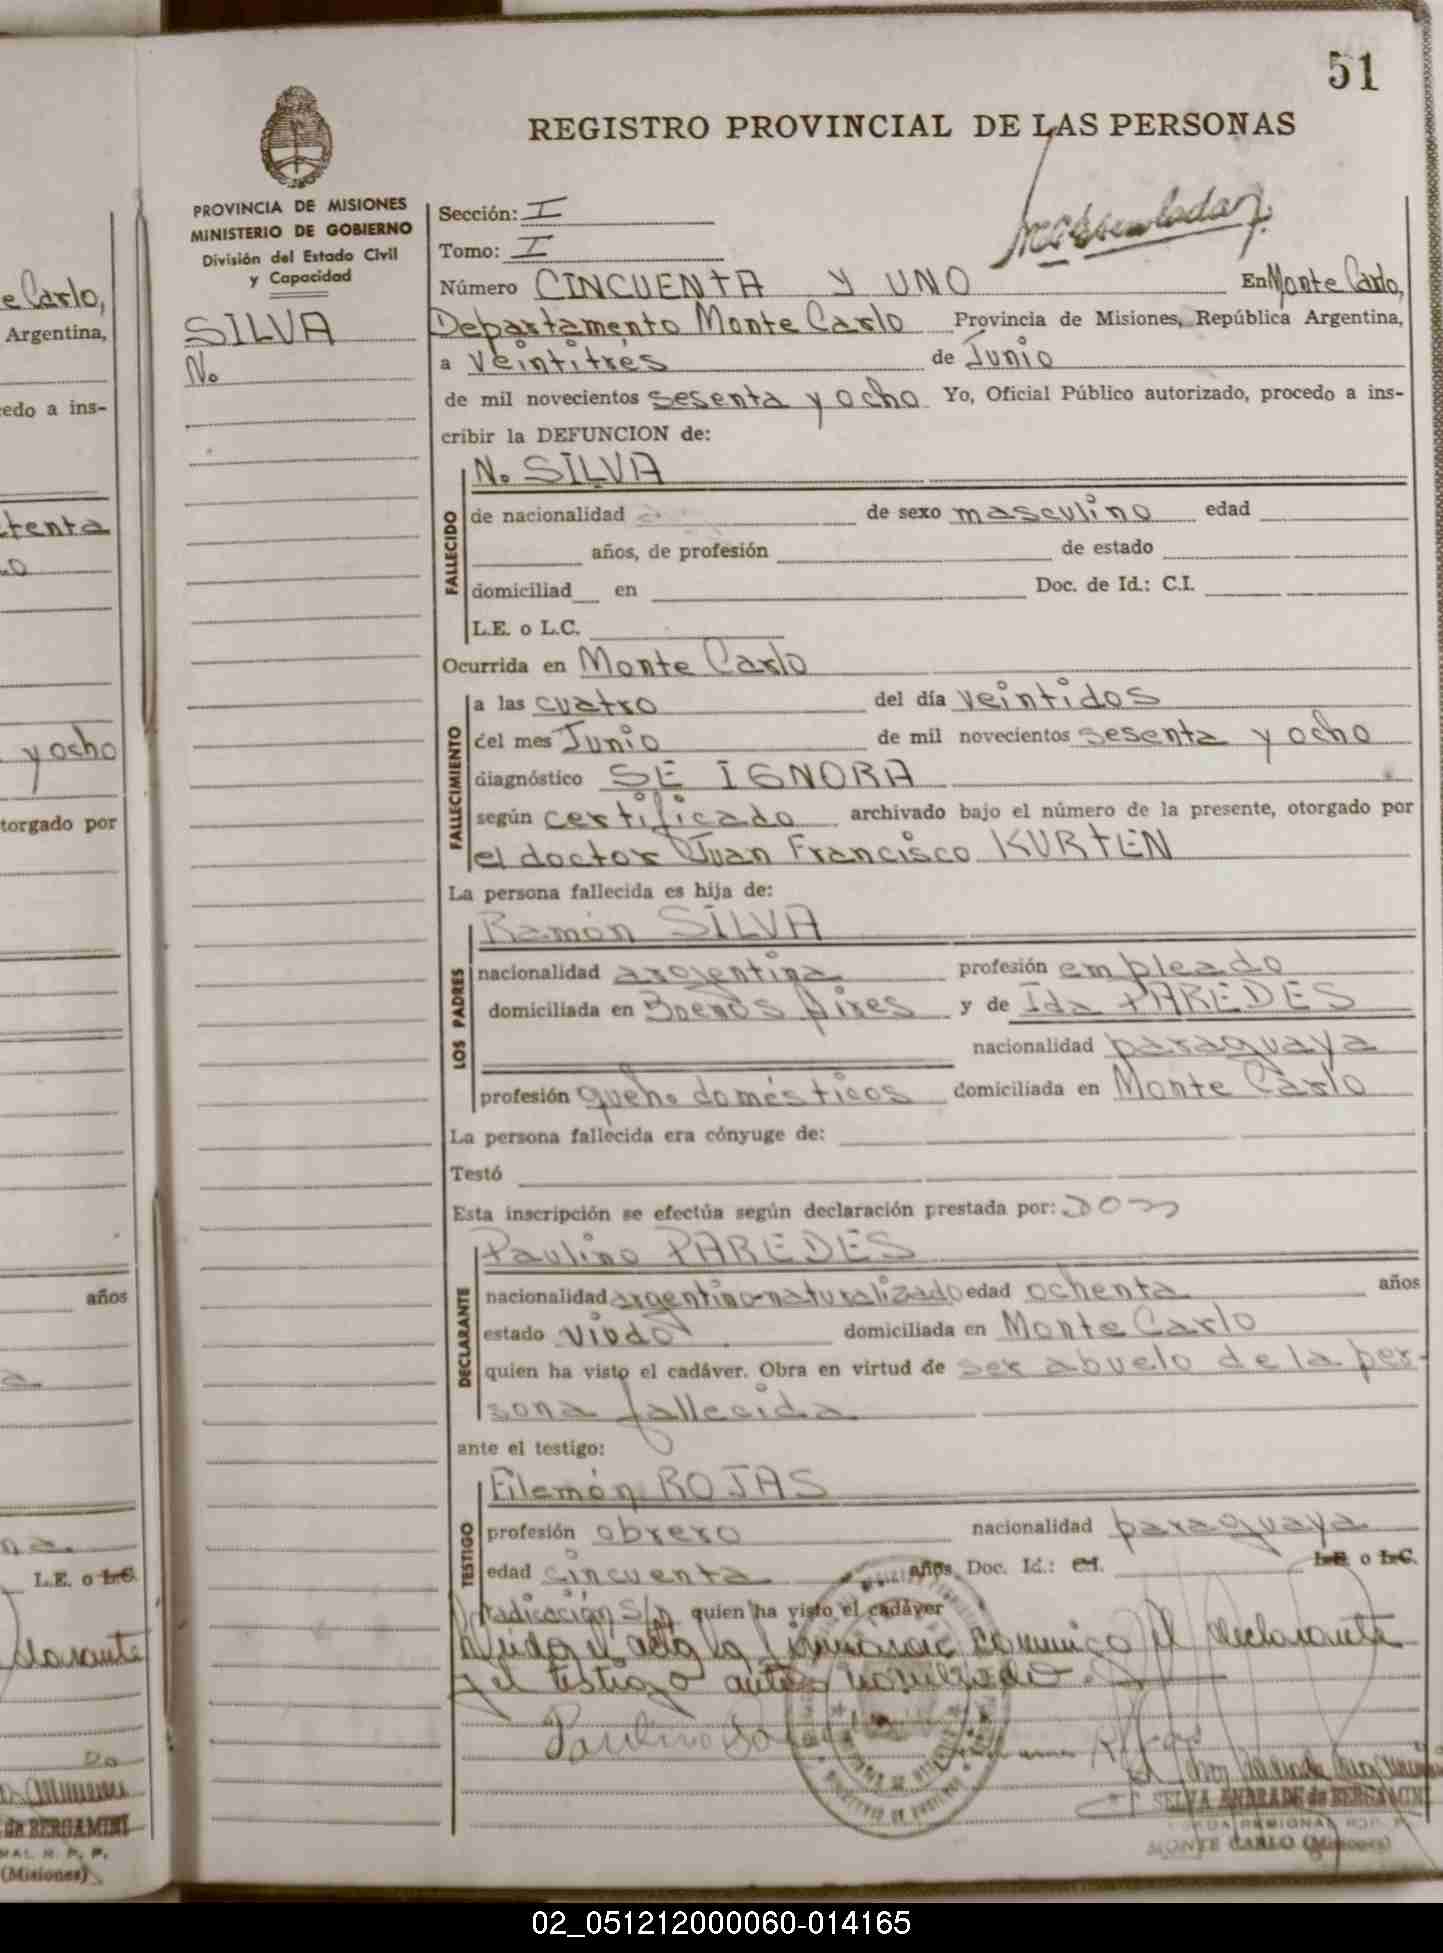 51
REGISTRO PROVINCIAL DE LAS PERSONAS
PROVINCIA DE MISIONES
MINISTERIO DE GOBIERNO
División del Estado Civil
y Capacidad
SILVA
N.
Sección: I
Tomo: I
Número CINCUENTA Y UNO En Monte Carlo,
Departamento Monte Carlo Provincia de Misiones, República Argentina,
a veintitrés de Junio
de mil novecientos sesenta y ocho Yo, Oficial Público autorizado, procedo a ins-
cribir la DEFUNCION de:
FALLECIDO
N. SILVA
de nacionalidad de sexo masculino edad
años, de profesión de estado
domiciliad en Doc. de Id.: C.I.
L.E. o L.C.
Ocurrida en Monte Carlo
FALLECIMIENTO
a las cuatro del día veintidos
del mes Junio de mil novecientos sesenta y ocho
diagnóstico SE IGNORA
según certificado archivado bajo el número de la presente, otorgado por
el doctor Juan Francisco KURTEN
La persona fallecida es hija de:
LOS PADRES
Ramón SILVA
nacionalidad argentina profesión empleado
domiciliada en Buenos Aires y de Ida PAREDES
nacionalidad paraguaya
profesión queh. domésticos domiciliada en Monte Carlo
La persona fallecida era cónyuge de:
Testó
Esta inscripción se efectúa según declaración prestada por: don
DECLARANTE
Paulino PAREDES
nacionalidad argentino-naturalizado edad ochenta años
estado viudo domiciliada en Monte Carlo
quien ha visto el cadáver. Obra en virtud de ser abuelo de la per-
sona fallecida
ante el testigo:
TESTIGO
Filemón ROJAS
profesión obrero nacionalidad paraguaya
edad cincuenta años, Doc. Id.: C.I. L.E. o L.C.
radicación s/n quien ha visto el cadáver
el acta la conmigo el declarante
y el testigo antes nombrado.
Paulino
SELVA ANDRADE de BERGAMINI
MONTE CARLO (Misiones)
e Carlo,
Argentina,
edo a ins-
y ocho
torgado por
años
L.E. o L.C.
de BERGAMINI
(Misiones)
02_051212000060-014165